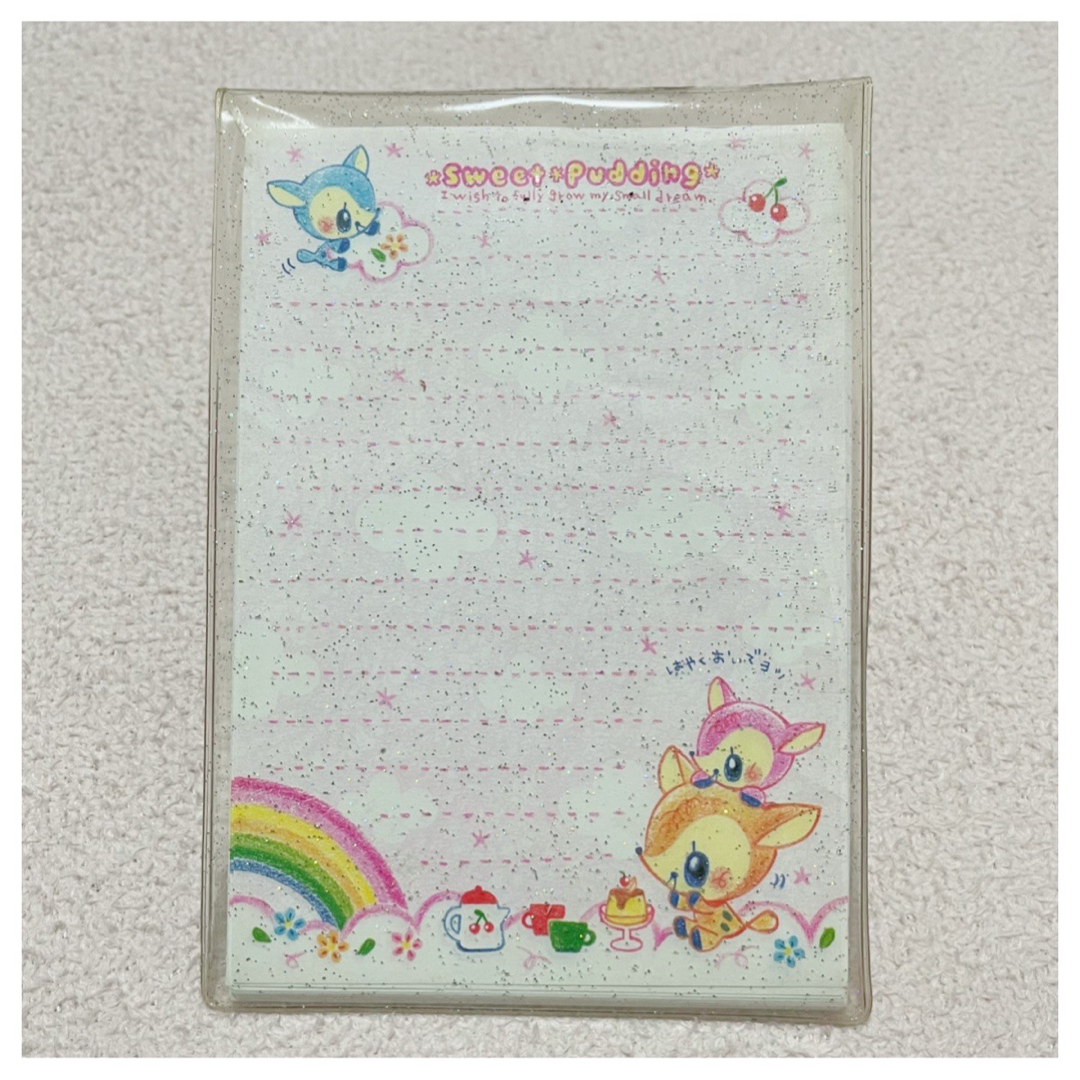 Sweet*Pudding
I wish to fully grow my small dream.
はやくおいでヨッ